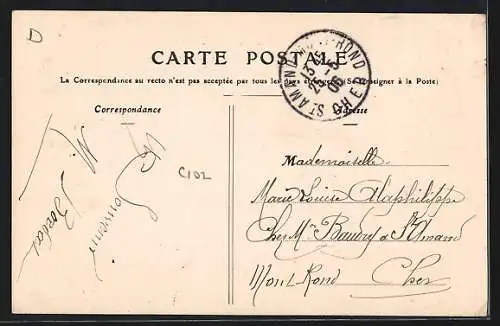 D
CARTE POSTALE
La Correspondance au recto n'est pas acceptée par tous les pays étrangers (Se renseigner à la Poste)
Correspondance
Adresse
ST AMAND-MONT-ROND
CHER
C102
Souvenir
Mademoiselle
Marie Louise Alaphilippe
Chez Mr Baudry à St Amand
Mont-Rond Cher